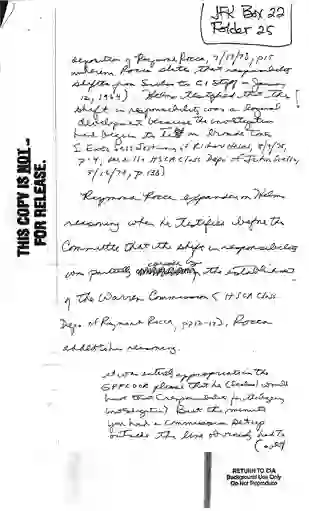 JFK Box 22
Folder 25
deposition of Raymond Rocca, 7/17/78, p15
wherein Rocca states that responsibility
shifted from Scelso to CI Staff - January
12, 1964) Helms testified that the
shift in responsibility was a logical
development because the investigation
had begun to on broader tone
Exec Sess Testimony of Richard Helms, 8/9/78,
p. 4, see also HSCA Class Depo of John Scelso,
5/16/78, p. 138)
Raymond Rocca expanded on Helms
reasoning when he testified before the
Committee that the shift in responsibility
was partially caused by the establishment
of the Warren Commission (HSCA Class
Depo. of Raymond Rocca, p12-13), Rocca
added to his reasoning.
it was entirely appropriate in the
GPFLOOR phase that he (Scelso) would
have that (responsibility for the Agency
investigation) But the minute
you had a Commission set up
outside the line obviously had to
(over)
THIS COPY IS NOT
FOR RELEASE.
RETURN TO CIA
Background Use Only
Do Not Reproduce